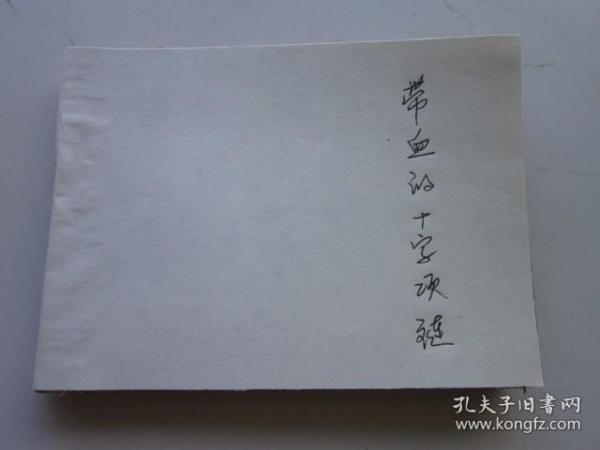 带血的十字项链
孔夫子旧書网
www.kongfz.com